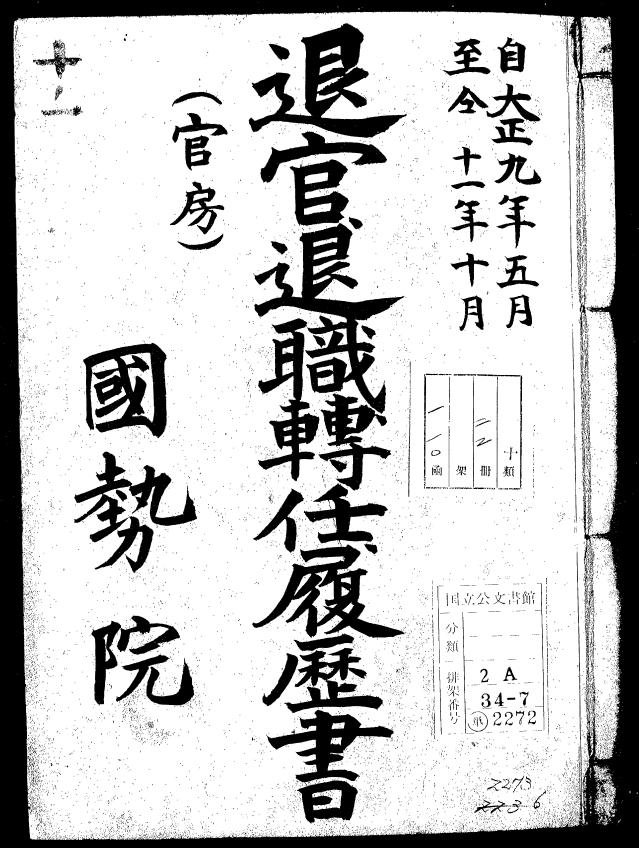 自大正九年五月
至仝十一年十月
退官退職轉任履歷書
(官房)
國勢院
十類
二二冊
架
一一〇凾
国立公文書館
分類
排架番号
2A
34-7
㊥2272
2273